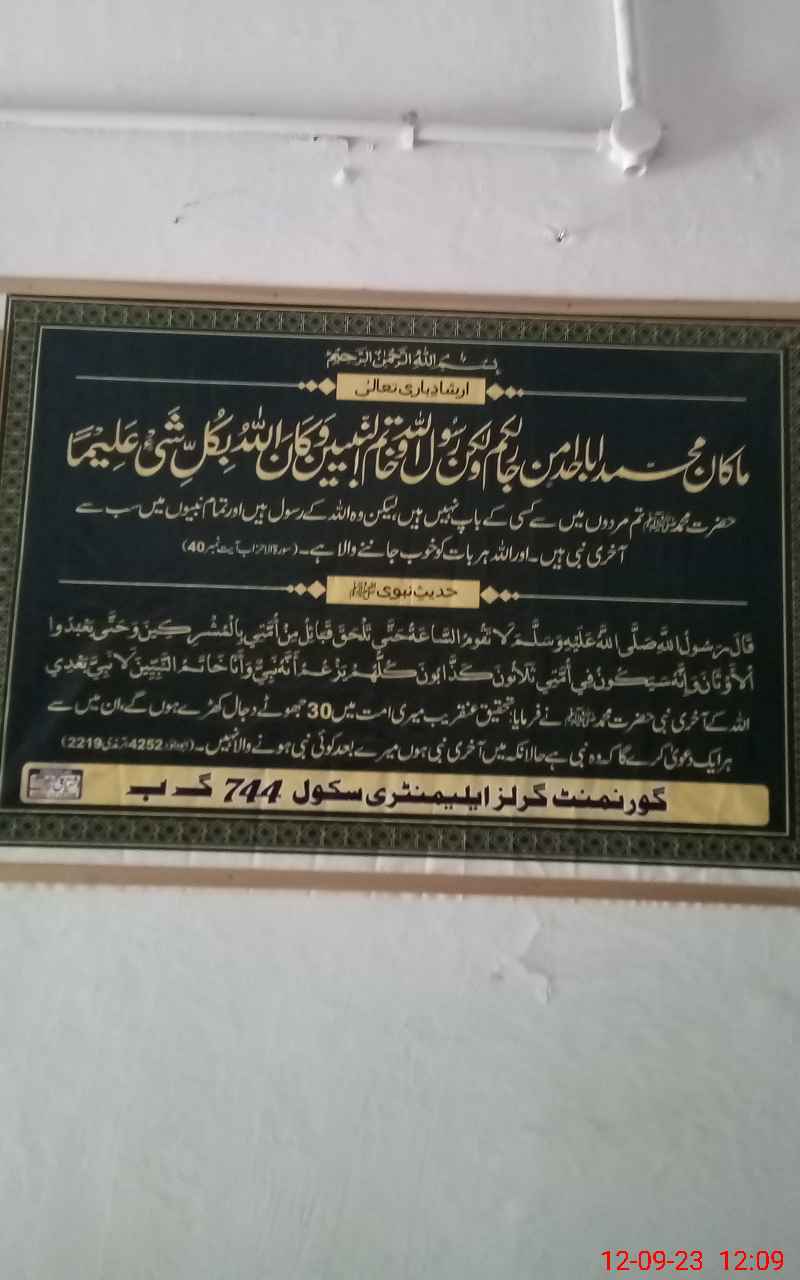 بِسْمِ اللهِ الرَّحْمٰنِ الرَّحِيْمِ
ارشادِ باری تعالیٰ
مَا كَانَ مُحَمَّدٌ اَبَا اَحَدٍ مِّن رِّجَالِكُمْ وَلٰكِن رَّسُولَ اللهِ وَخَاتَمَ النَّبِيِّينَ وَكَانَ اللهُ بِكُلِّ شَيْءٍ عَلِيْمًا
حضرت محمد ﷺ تم مردوں میں سے کسی کے باپ نہیں ہیں، لیکن وہ اللہ کے رسول ہیں اور تمام نبیوں میں سب سے
آخری نبی ہیں۔ اور اللہ ہر بات کو خوب جاننے والا ہے۔ (سورۃ الاحزاب آیت نمبر 40)
حدیث نبوی ﷺ
قَالَ رَسُولُ اللهِ صَلَّى اللهُ عَلَيْهِ وَسَلَّمَ لَا تَقُومُ السَّاعَةُ حَتَّى تَلْحَقَ قَبَائِلُ مِنْ أُمَّتِي بِالْمُشْرِكِينَ وَحَتَّى يَعْبُدُوا
الْأَوْثَانَ وَإِنَّهُ سَيَكُونُ فِي أُمَّتِي ثَلَاثُونَ كَذَّابُونَ كُلُّهُمْ يَزْعُمُ أَنَّهُ نَبِيٌّ وَأَنَا خَاتَمُ النَّبِيِّينَ لَا نَبِيَّ بَعْدِي
اللہ کے آخری نبی حضرت محمد ﷺ نے فرمایا: تحقیق عنقریب میری امت میں 30 جھوٹے دجال کھڑے ہوں گے، ان میں سے
ہر ایک دعویٰ کرے گا کہ وہ نبی ہے حالانکہ میں آخری نبی ہوں میرے بعد کوئی نبی ہونے والا نہیں۔ (ابوداؤد 4252، ترمذی 2219)
گورنمنٹ گرلز ایلیمنٹری سکول 744 گ ب
12-09-23 12:09